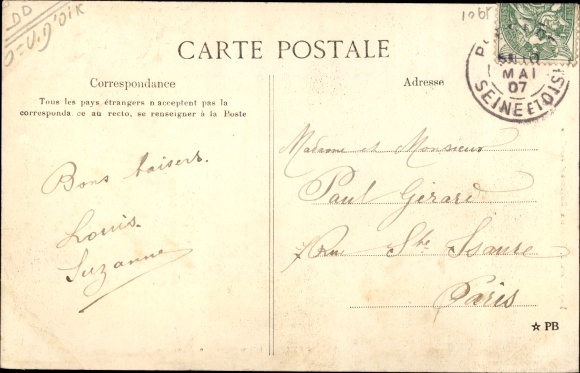 DD
CARTE POSTALE
Correspondance
Tous les pays étrangers n acceptent pas la
corresponda ce au recto, se renseigner à la Poste
Bons baisers.
Louis.
Suzanne
Adresse
MAI
07
SEINE ET OISE
Madame et Monsieur
Paul Gérard
7 Rue Ste Isaure
Paris
☆ PB